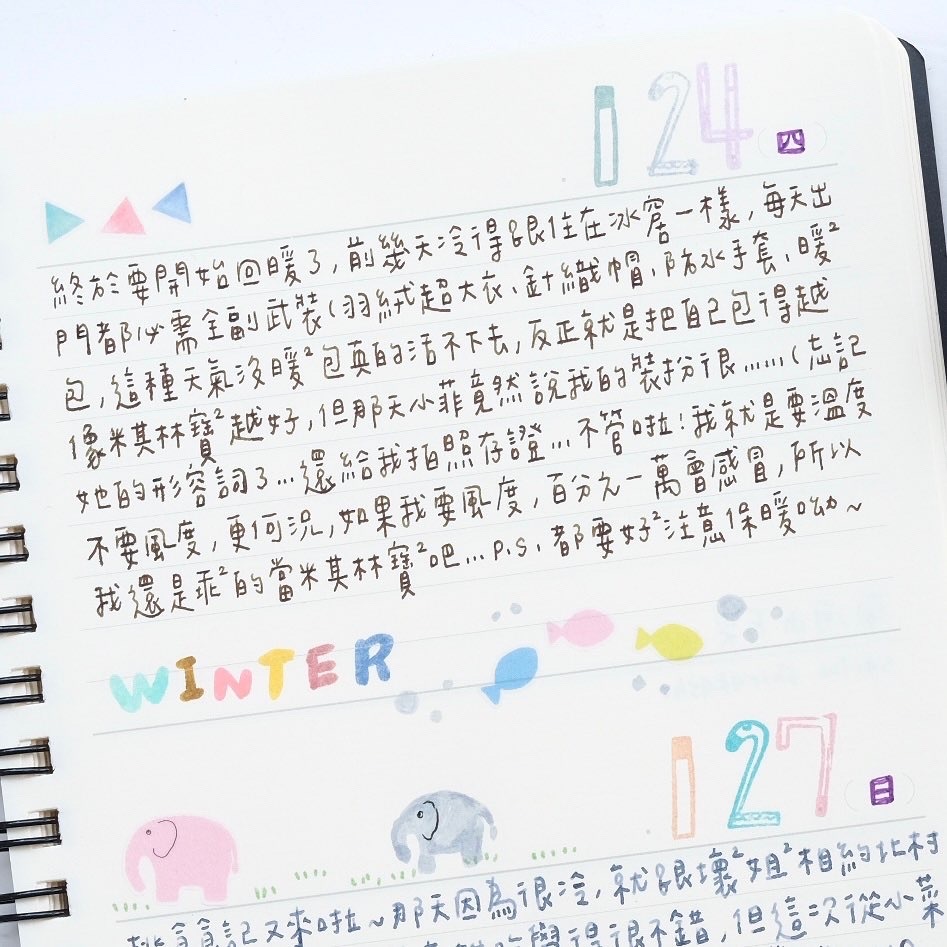 1 24 (四)
終於要開始回暖了,前幾天冷得跟住在冰窖一樣,每天出
門都必需全副武裝(羽絨超大衣、針織帽、防水手套、暖²
包,這種天氣沒暖²包真的活不下去,反正就是把自己包得越
像米其林寶²越好,但那天小菲竟然說我的裝扮很……(忘記
她的形容詞了…還給我拍照存證…不管啦!我就是要溫度
不要風度,更何況,如果我要風度,百分之一萬會感冒,所以
我還是乖²的當米其林寶²吧…P.S.都要好²注意保暖呦~
WINTER
1 27 (日)
貪食記又來啦~那天因為很冷,就跟壞²姐²相約北村
覺得很不錯,但這次從小菜